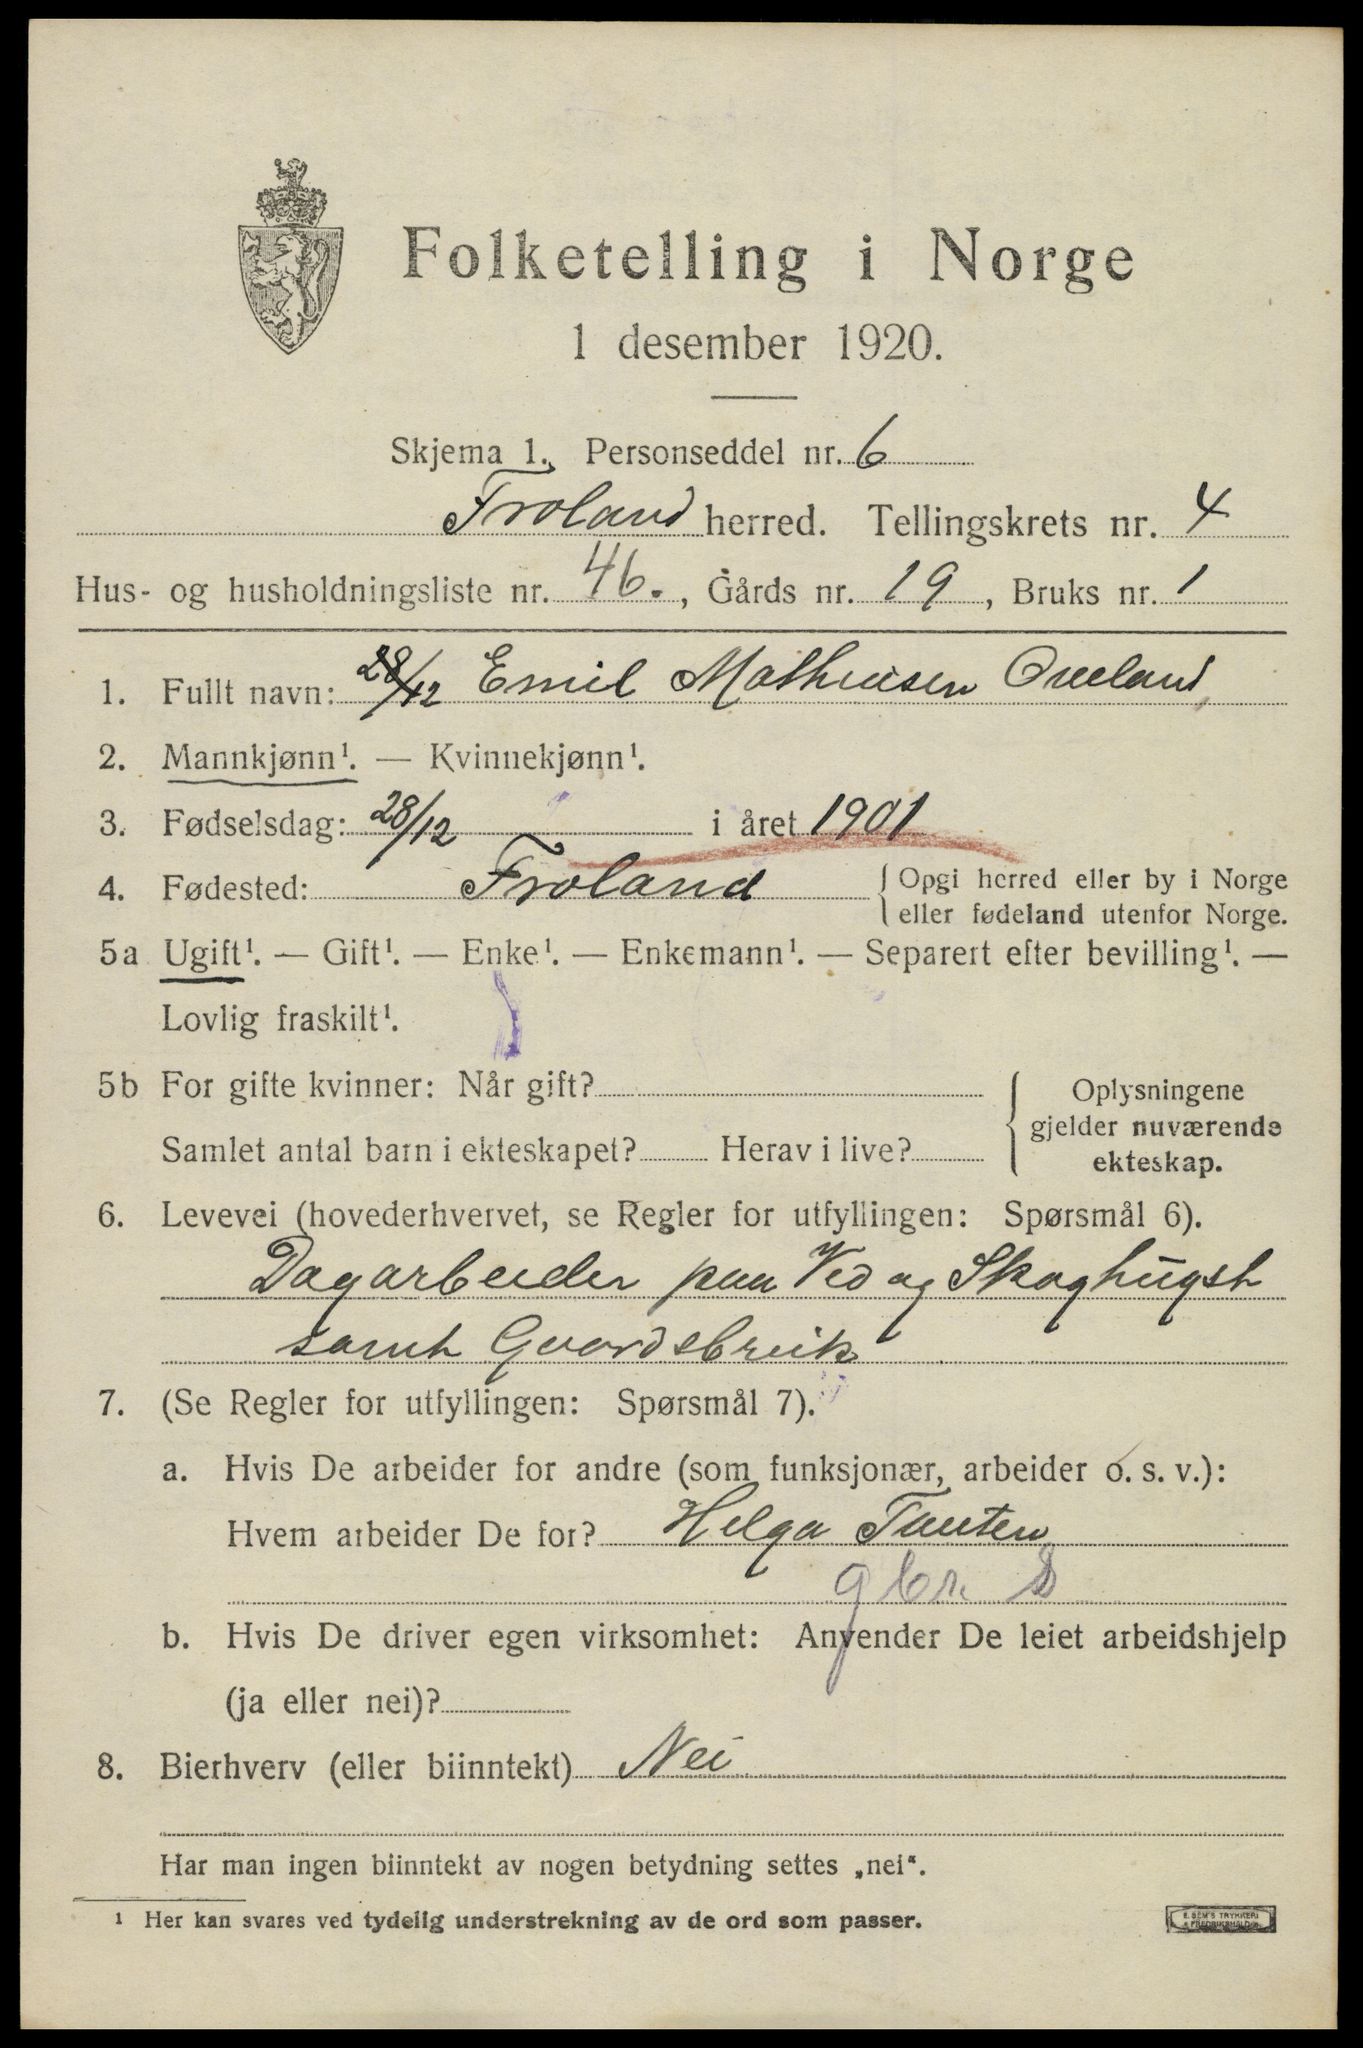 Folketelling i Norge
1 desember 1920.
Skjema 1. Personseddel nr. 6
Froland herred. Tellingskrets nr. 4
Hus- og husholdningsliste nr. 46., Gårds nr. 19, Bruks nr. 1
1. Fullt navn: 28/12 Emil Mathiesen Oveland
2. Mannkjønn¹. — Kvinnekjønn¹.
3. Fødselsdag: 28/12 i året 1901
4. Fødested: Froland { Opgi herred eller by i Norge
eller fødeland utenfor Norge.
5a Ugift¹. — Gift¹. — Enke¹. — Enkemann¹. — Separert efter bevilling¹. —
Lovlig fraskilt¹.
5b For gifte kvinner: Når gift?
Samlet antal barn i ekteskapet? Herav i live?
Oplysningene
gjelder nuværende
ekteskap.
6. Levevei (hovederhvervet, se Regler for utfyllingen: Spørsmål 6).
Dagarbeider paa Ved og Skoghugst
samt Gaardsbruik
7. (Se Regler for utfyllingen: Spørsmål 7).
a. Hvis De arbeider for andre (som funksjonær, arbeider o. s. v.):
Hvem arbeider De for? Helga
gbr.
b. Hvis De driver egen virksomhet: Anvender De leiet arbeidshjelp
(ja eller nei)?
8. Bierhverv (eller biinntekt) Nei
Har man ingen biinntekt av nogen betydning settes „nei“.
¹ Her kan svares ved tydelig understrekning av de ord som passer.
E. SEM'S TRYKKERI
FREDRIKSHALD